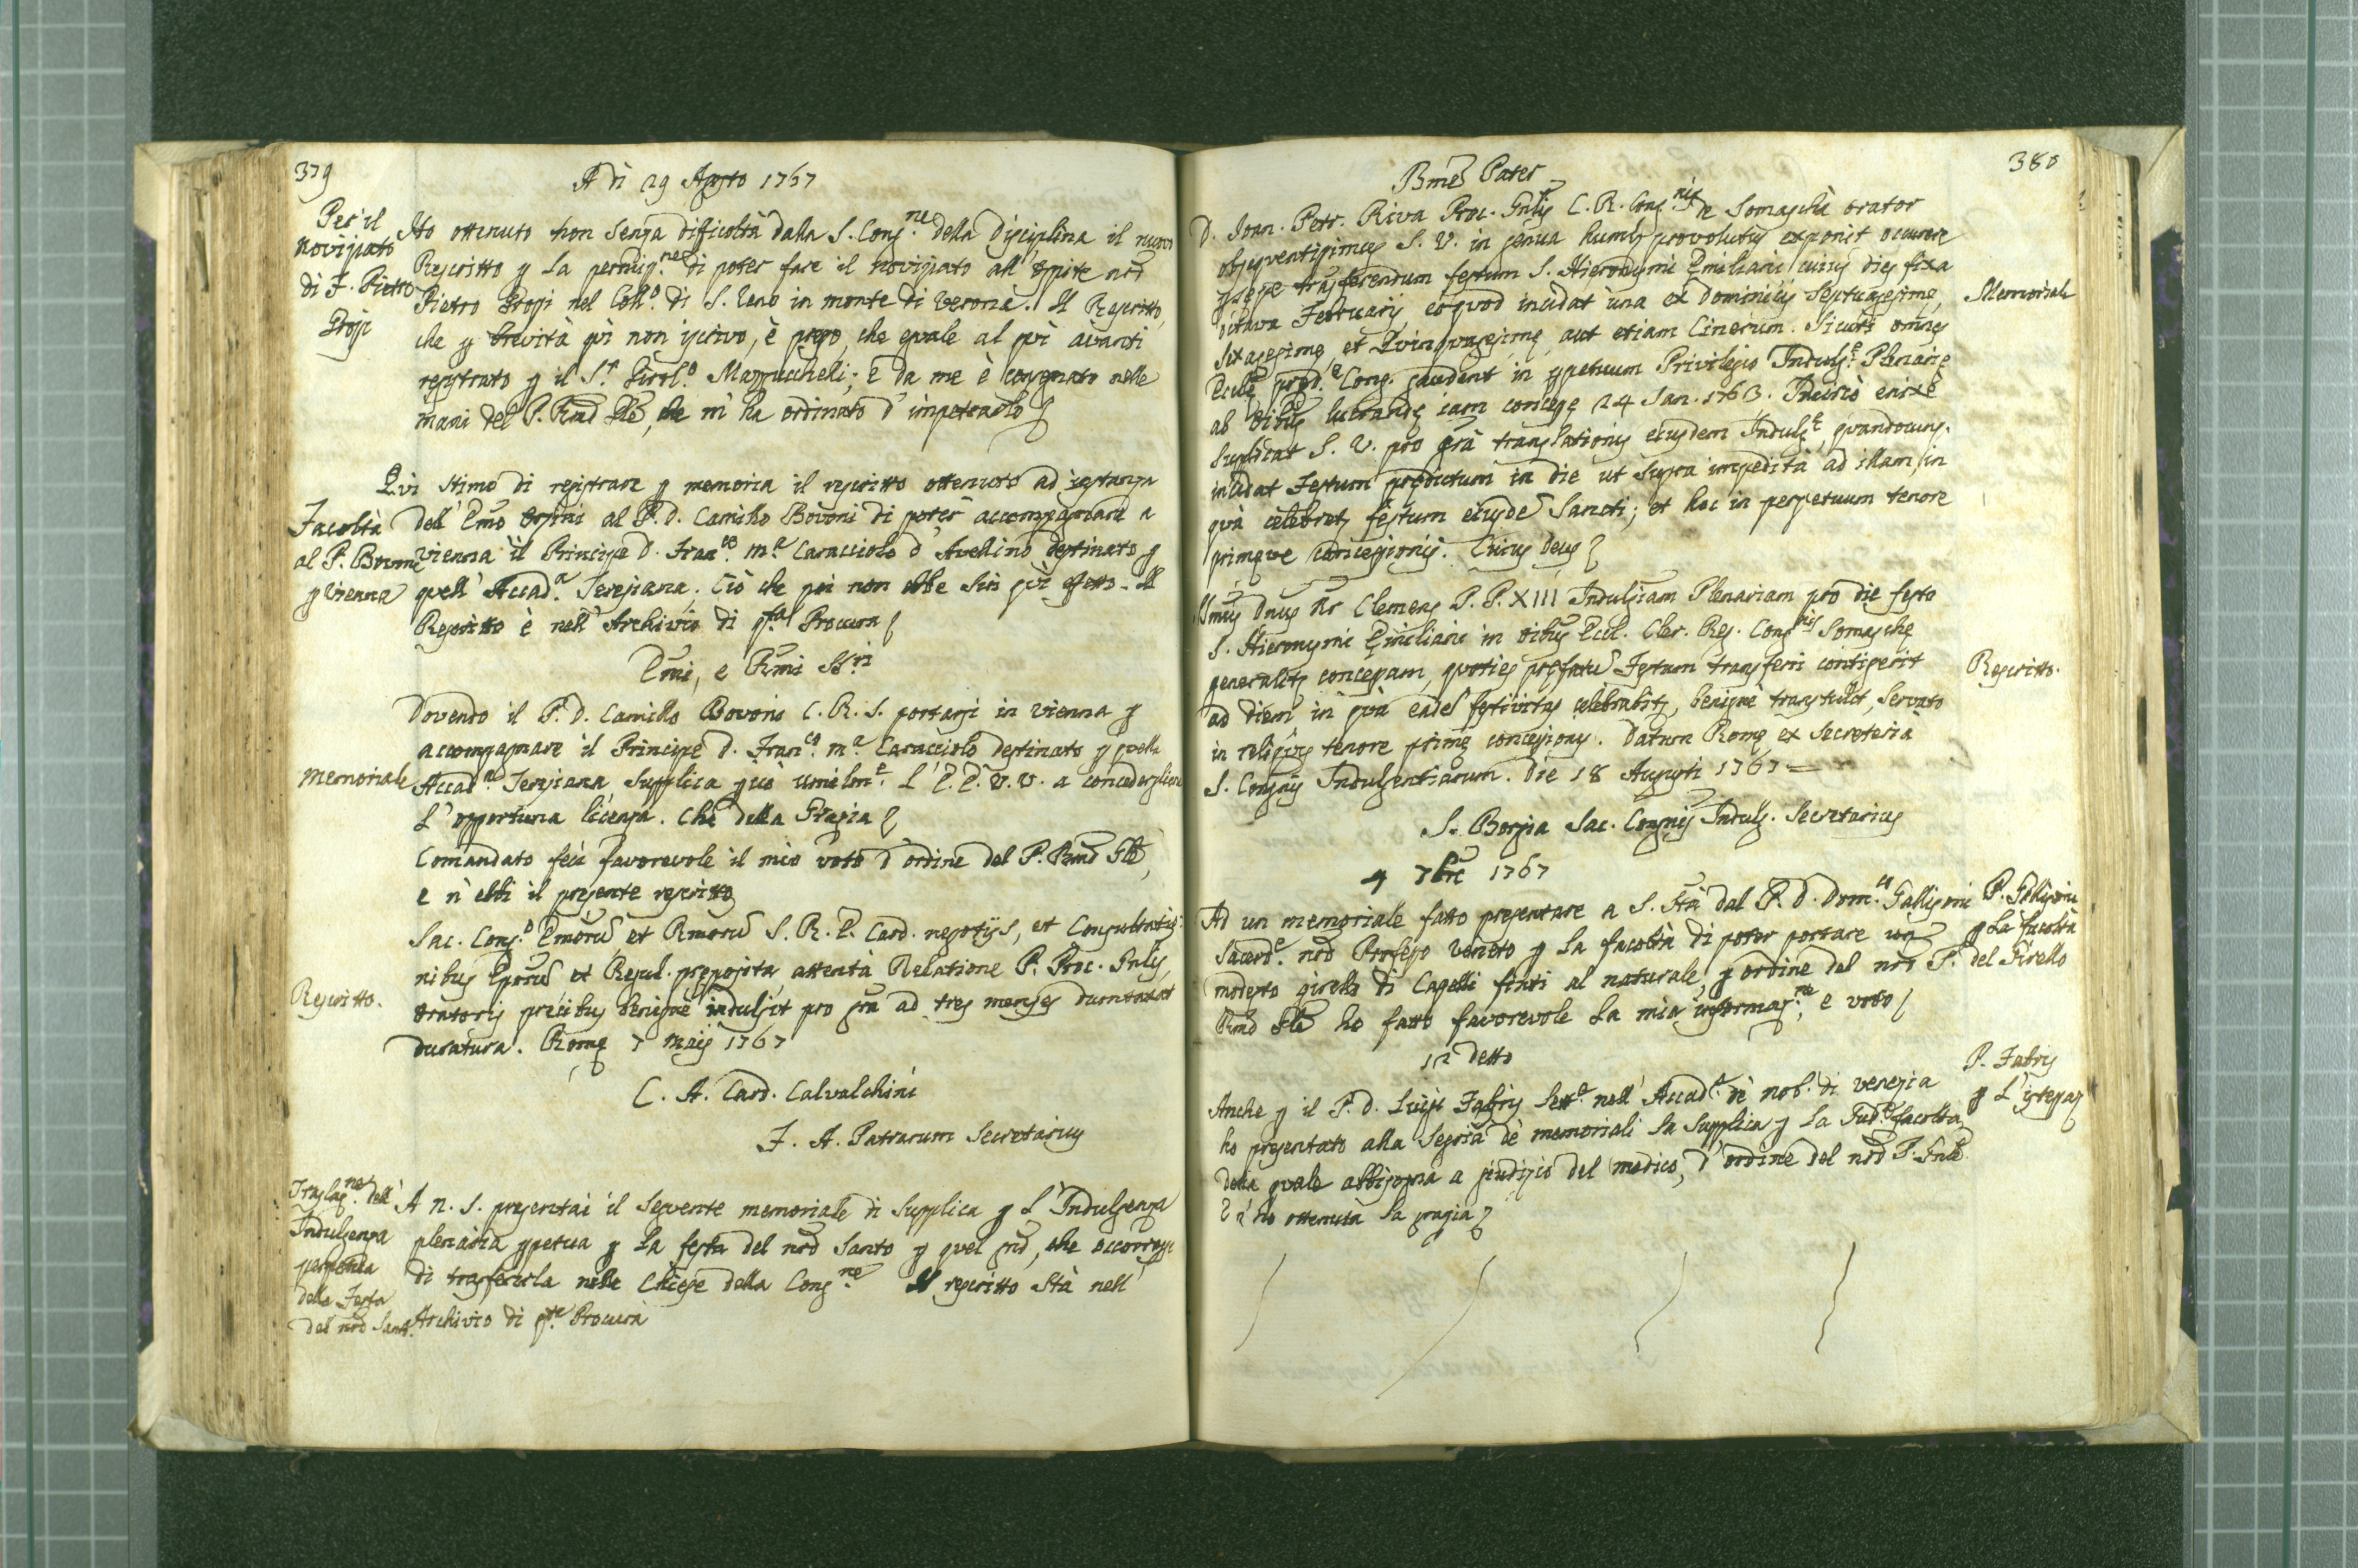 379
A dì 29 Agosto 1767
Per il
Noviziato
di F. Pietro
Grossi
Ho ottenuto non senza dificoltà dalla S. Cong.ne della Disciplina il nuovo
Rescritto p la permiss.ne di poter fare il noviziato all' Ospite nrō
Pietro Grossi nel Coll.o di S. Zeno in monte di Verona. Il Rescritto,
che p brevità qì non iscrivo, è preso, che eguale al qì avanti
registrato p il S.r Girol.o Mazzuchelli; e da me è consegnato nelle
mani del P. Rmō Glē, che m' ha ordinato d' impetrarlo
Facoltà
al P. Bovoni
p Vienna
Qvi stimo di registrare p memoria il rescritto ottenuto ad istanza
dell' Emō Orsini al P. D. Camillo Bovoni di poter accompagnare a
Vienna il Principe D. Fran.co M.a Caracciolo d' Avellino destinato p
quell' Accad.a Teresiana. Ciò che poi non ebbe sin qì effetto. Il
Rescritto è nell' Archivio di q.ta Procura
Emi, e Rmi SS.ri
Memoriale
Dovendo il P. D. Camillo Bovoni C. R. S. portarsi in Vienna p
accompagnare il Principe D. Fran.co M.a Caracciolo destinato p quella
Accad.a Teresiana, supplica pciò umilm.e L' E. E. V. V. a concedergliene
L' opportuna licenza. Che della Grazia
Comandato feci favorevole il mio voto d' ordine del P. Rmō Glē,
e n' ebbi il presente rescritto
Rescritto.
Sac. Cong.o Emorū et Rmorū S. R. E. Card. negotijs, et Consultatio-
nibus Eporū et Regul. preposita, attentà Relatione P. Proc. Gnlis,
Oratoris precibus benignè indulsit pro grā ad tres menses dumtaxat
duratura. Romę 7 Maij 1767
C. A. Card. Calvalchini
F. A. Patrarum Secretarius
Traslaz.ne dell'
Indulgenza
perpetua
della Festa
del nrō Santo
A N. S. presentai il seguente memoriale di supplica p L' Indulgenza
plenaria ppetua p la festa del nrō Santo p quel gnō, che occorresse
di trasferirla nelle Chiese della Cong.ne Il rescritto stà nell'
Archivio di q.ta Procura
380
Bmē Pater
D. Ioan. Petr. Riva Proc. Gnlis C. R. Cong.nis de Somaschà orator
obsequentissimus S. V. in genua humlr provolutus exponit occurrere
psepe trasferendum festum S. Hieronymi Emiliani cuius dies fixa
octava Februarij eoquod incidat una ex Dominicis Septuagesimę,
Sexagesimę, et Quinquagesimę, aut etiam Cinerum. Sicuti omnes
Eccłę pręd.ę Cong. gaudent in ppetuum Privilegio Indulg.ę Plenarię
ab oibus lucrandę iam concessę 24 Jan. 1763. Inciscò enixè
supplicat S. V. pro grā translationis eiusdem Indulg.ę, quandocums.
incidat Festum prędictum in die ut supra impedità ad illam, in
quà celebretr festum eiusdē Sancti; et hoc in perpetuum tenore
primęve concessionis. Cuius Deus
Memoriale
SSmus Dnus Nr Clemens P. P. XIII Indulgiam Plenariam pro die festo
S. Hieronymi Emiliani in oibus Eccl. Cler. Reg. Cong.nis Somaschę
generalitr concessam, quoties pręfatū Festum transferri contigerit
ad diem in quà eadē festivitas celebrabitr, benignè transtulit, servato
in reliquis tenore primę concessionis. Datum Romę ex Secreteria
S. Congnis Indulgentiarum. Die 18 Augusti 1767
Rescritto.
S. Borgia Sac. Congnis Indulg. Secretarius
4 7bre 1767
Ad un memoriale fatto presentare a S. Stà dal P. D. Dom.co Galligoni
Sacerd.e nrō Professo Veneto p la facoltà di poter portare un
modesto girello di Capelli finti al naturale, p ordine del nrō P.
Rmō Glē ho fatto favorevole la mia informaz.ne, e voto
P. Galligoni
p la facoltà
del Girello
in detto
Anche p il P. D. Luigi Fabris Sett.o nell' Accad.a de' Nob. di Venezia
ho presentato alla Segria de' memoriali la supplica p la Sud.a facoltà
della quale abbisogna a giudizio del medico, d' ordine del nrō P. Gnlē
E n' ho ottenuta la grazia
P. Fabris
p L' istessa